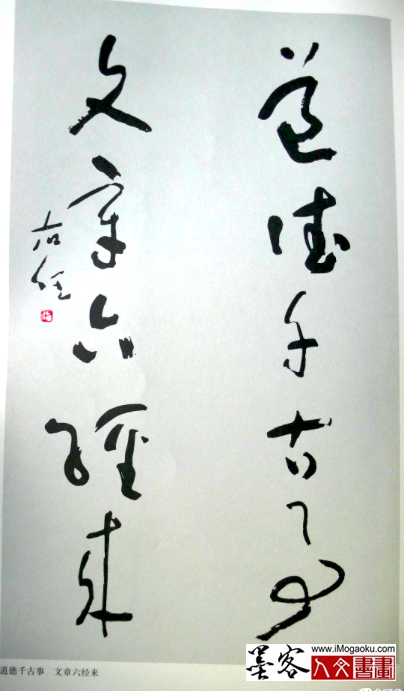 道德千古事
文章六經来
右任
道德千古事　文章六经来
墨客
www.iMogaoku.com
人文書畫